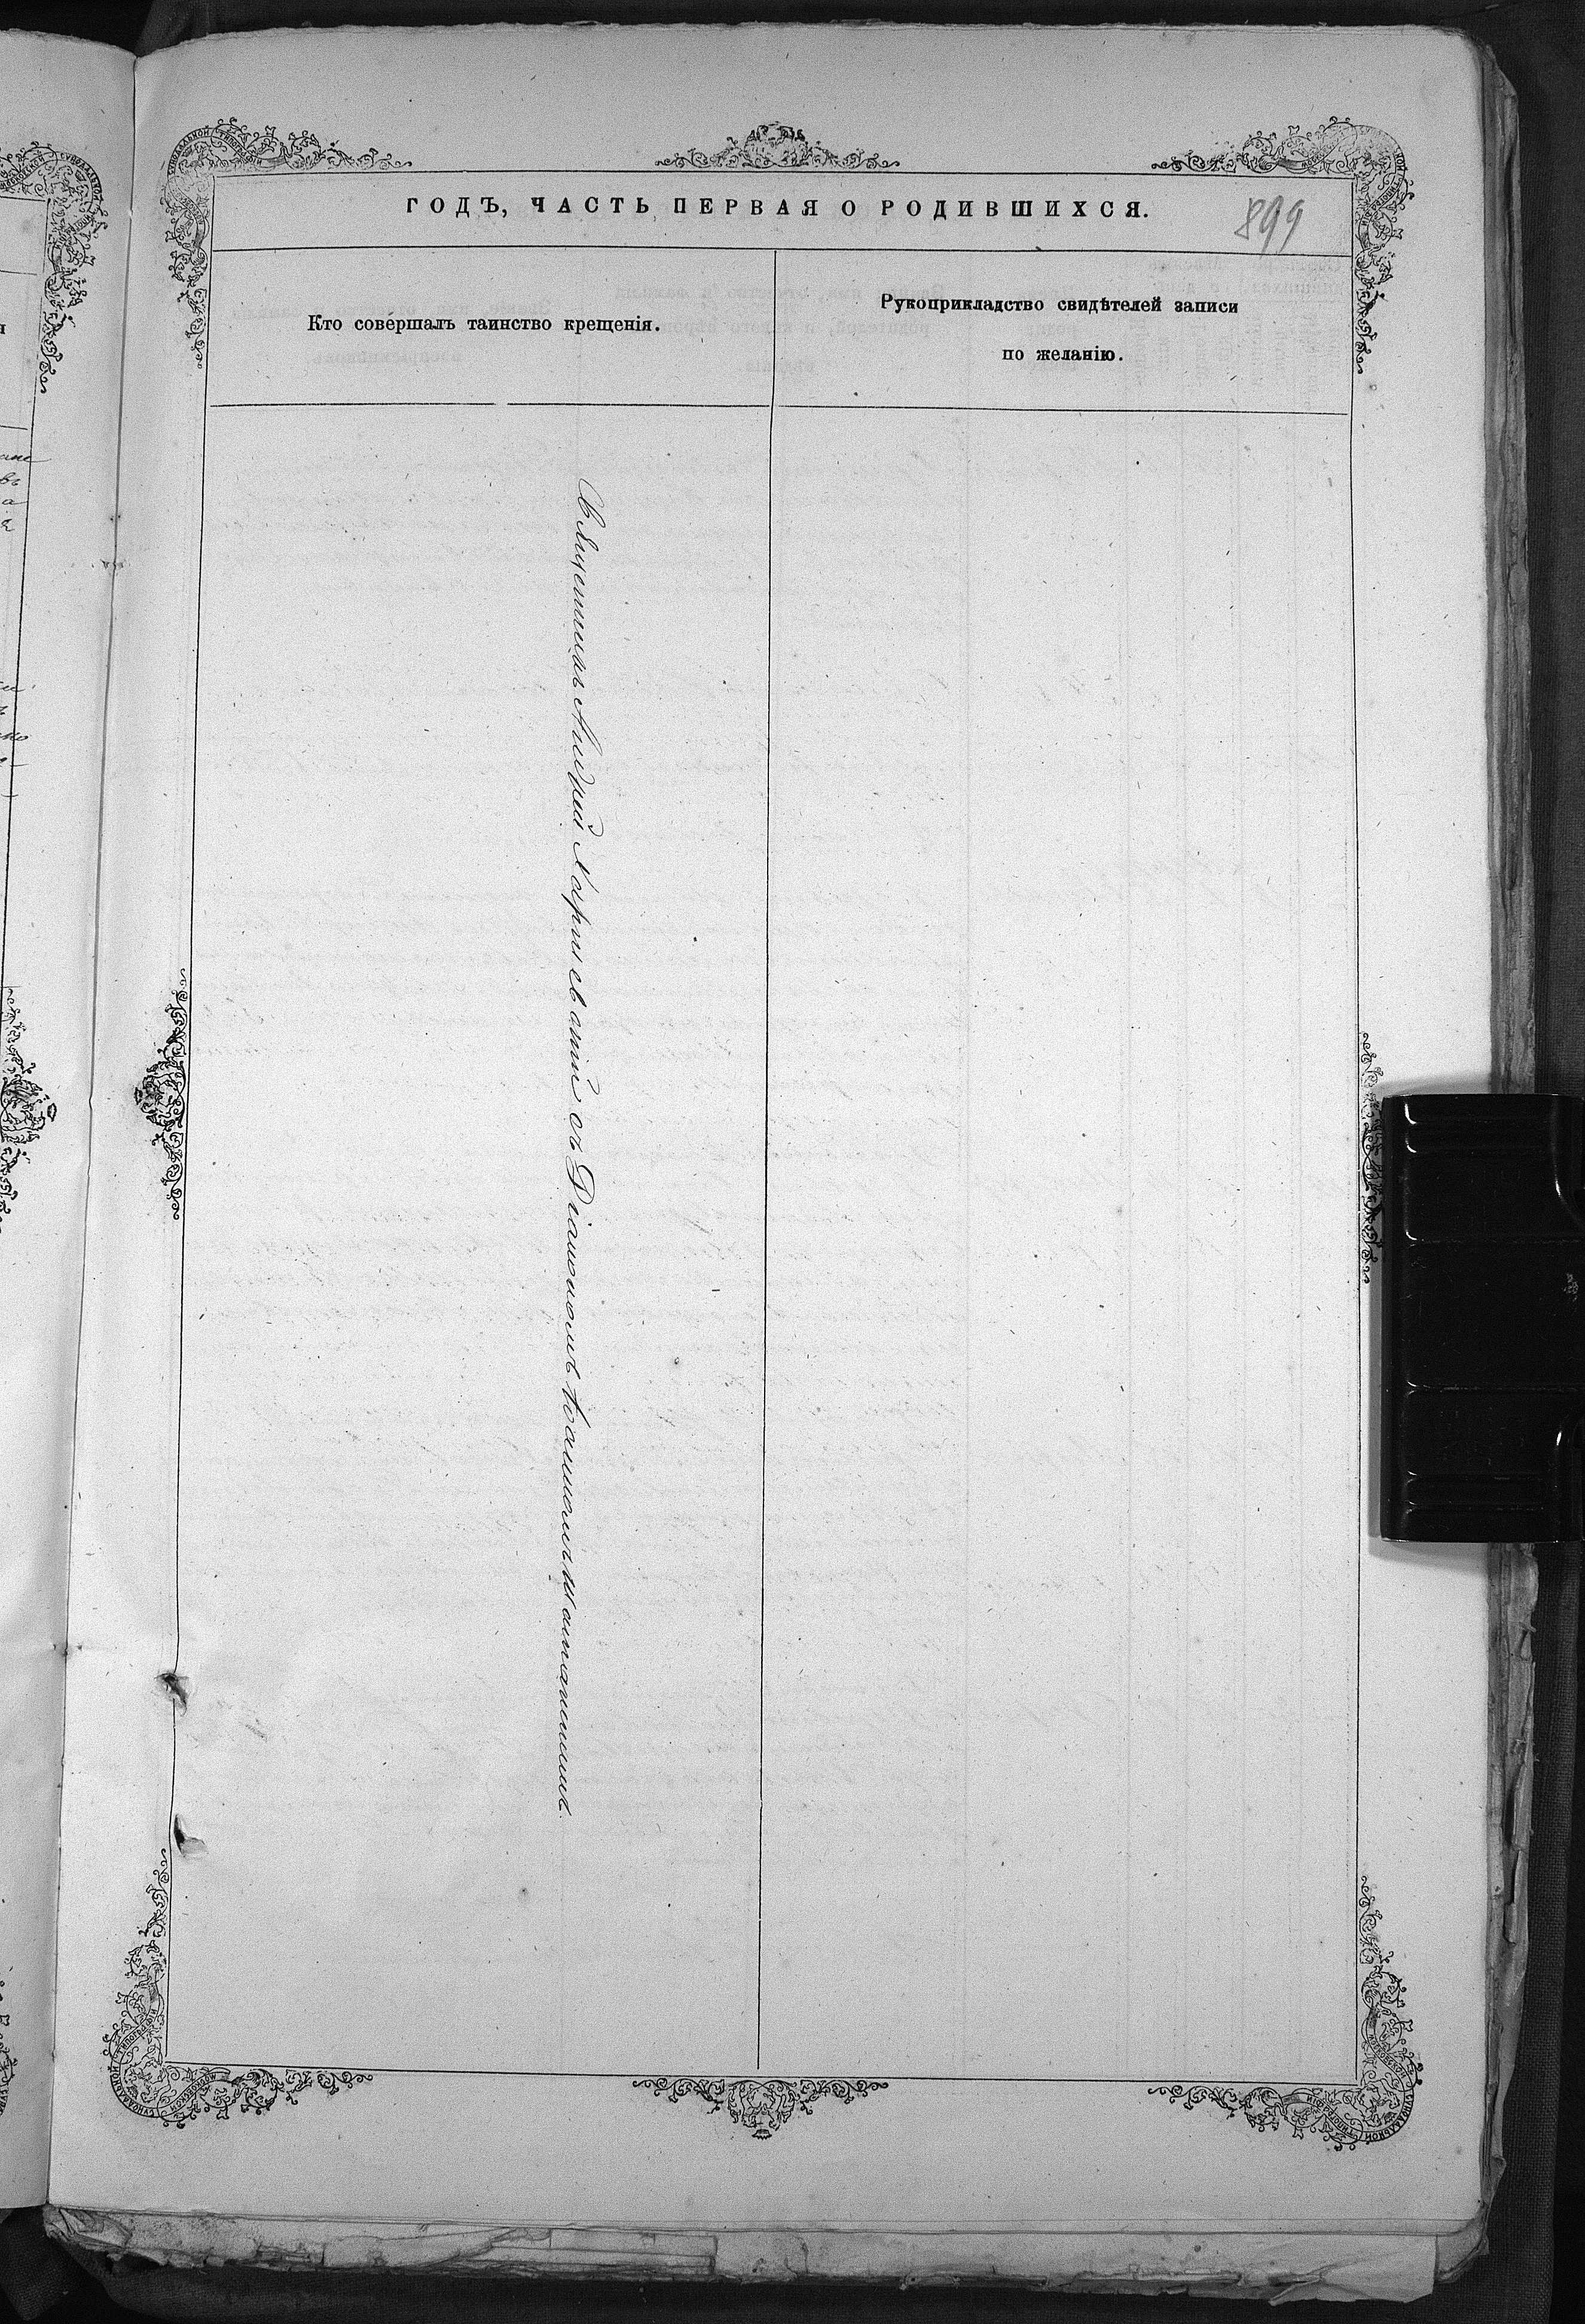 ГОДЪ, ЧАСТЬ ПЕРВАЯ О РОДИВШИХСЯ.
899
Кто совершалъ таинство крещенія.
Рукоприкладство свидѣтелей записи
по желанію.
Священникъ Андрей съ Діакономъ